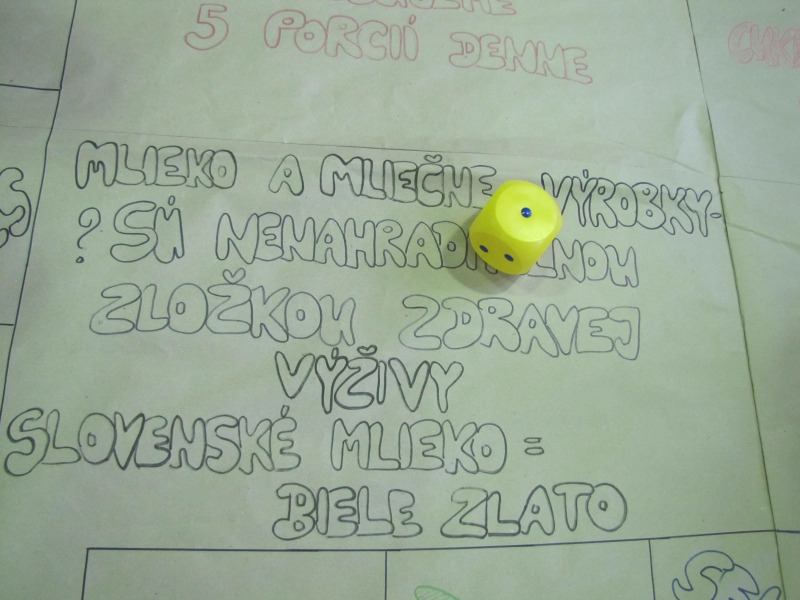 5 PORCIÍ DENNE
MLIEKO A MLIEČNE VÝROBKY-
? SÚ
ZLOŽKOU ZDRAVEJ
VÝŽIVY
SLOVENSKÉ MLIEKO =
BIELE ZLATO